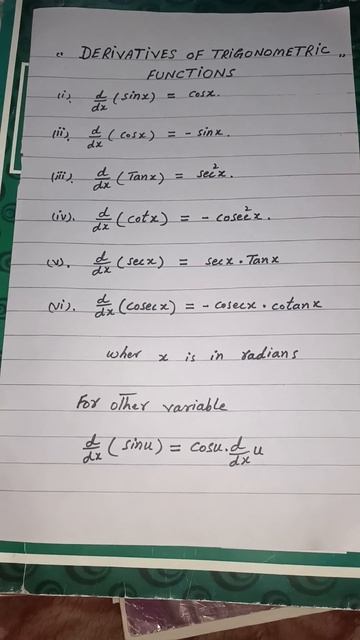 “ DERIVATIVES OF TRIGONOMETRIC „
FUNCTIONS
(i). d/dx (sinx) = cosx.
(ii). d/dx (cosx) = - sinx.
(iii). d/dx (Tanx) = sec²x.
(iv). d/dx (cotx) = - cosec²x.
(v). d/dx (secx) = secx . Tanx
(vi). d/dx (cosecx) = - cosecx . cotanx
wher x is in radians
For other variable
d/dx (sinu) = cosu. d/dx u